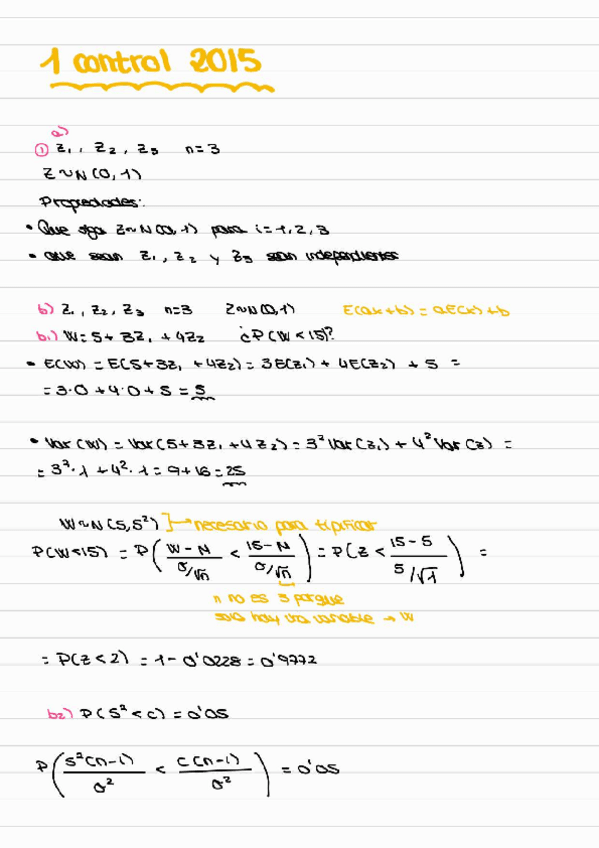 1 control 2015
a)
① Z₁, Z₂, Z₃ n=3
Z~N(0,1)
Propiedades:
• Que siga Z~N(0,1) para i=1,2,3
• que sean Z₁, Z₂ y Z₃ sean independientes
b) Z₁, Z₂, Z₃ n=3 Z~N(0,1) E(ax+b) = aE(x)+b
b₁) W=5+3Z₁+4Z₂ ¿P(W<15)?
• E(W) = E(5+3Z₁+4Z₂) = 3E(Z₁) + 4E(Z₂) + 5 =
= 3·0+4·0+5 = 5
• Var(W) = Var(5+3Z₁+4Z₂) = 3²Var(Z₁) + 4²Var(Z) =
= 3²·1+4²·1 = 9+16 = 25
W~N(5,5²) ]→ necesario para tipificar
P(W<15) = P( (W-N)/(σ/√n) < (15-N)/(σ/√n) ) = P(Z < (15-5)/(5/√1) ) =
n no es 3 porque
solo hay una variable → W
= P(Z<2) = 1-0'0228 = 0'9772
b₂) P(S²<c) = 0'05
P( S²(n-1)/σ² < C(n-1)/σ² ) = 0'05